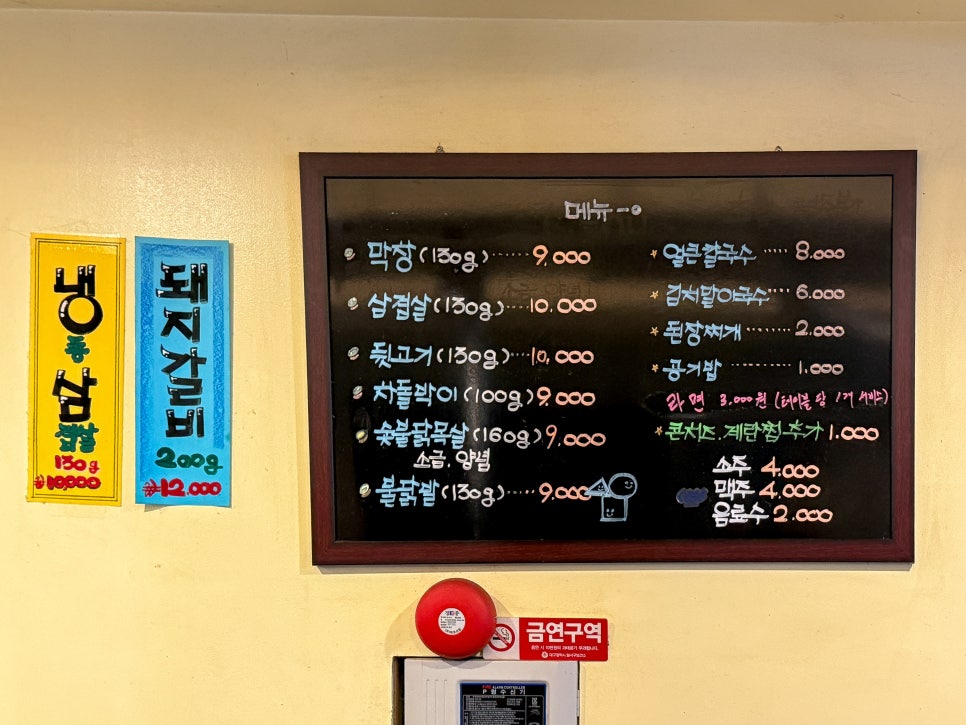 냉동삼겹살
130g
₩10,000
돼지갈비
200g
₩12.000
메뉴
막창(130g) 9.000
삼겹살(130g) 10.000
뒷고기(130g) 10.000
차돌박이(100g) 9.000
숯불닭목살(160g) 9.000
소금.양념
불닭발(130g) 9.000
얼큰칼국수 8.000
김치말이국수 6.000
된장찌개 2.000
공기밥 1.000
라면 3.000원 (테이블당 1개 서비스)
콘치즈.계란찜추가 1.000
소주 4.000
맥주 4.000
음료수 2.000
금연구역